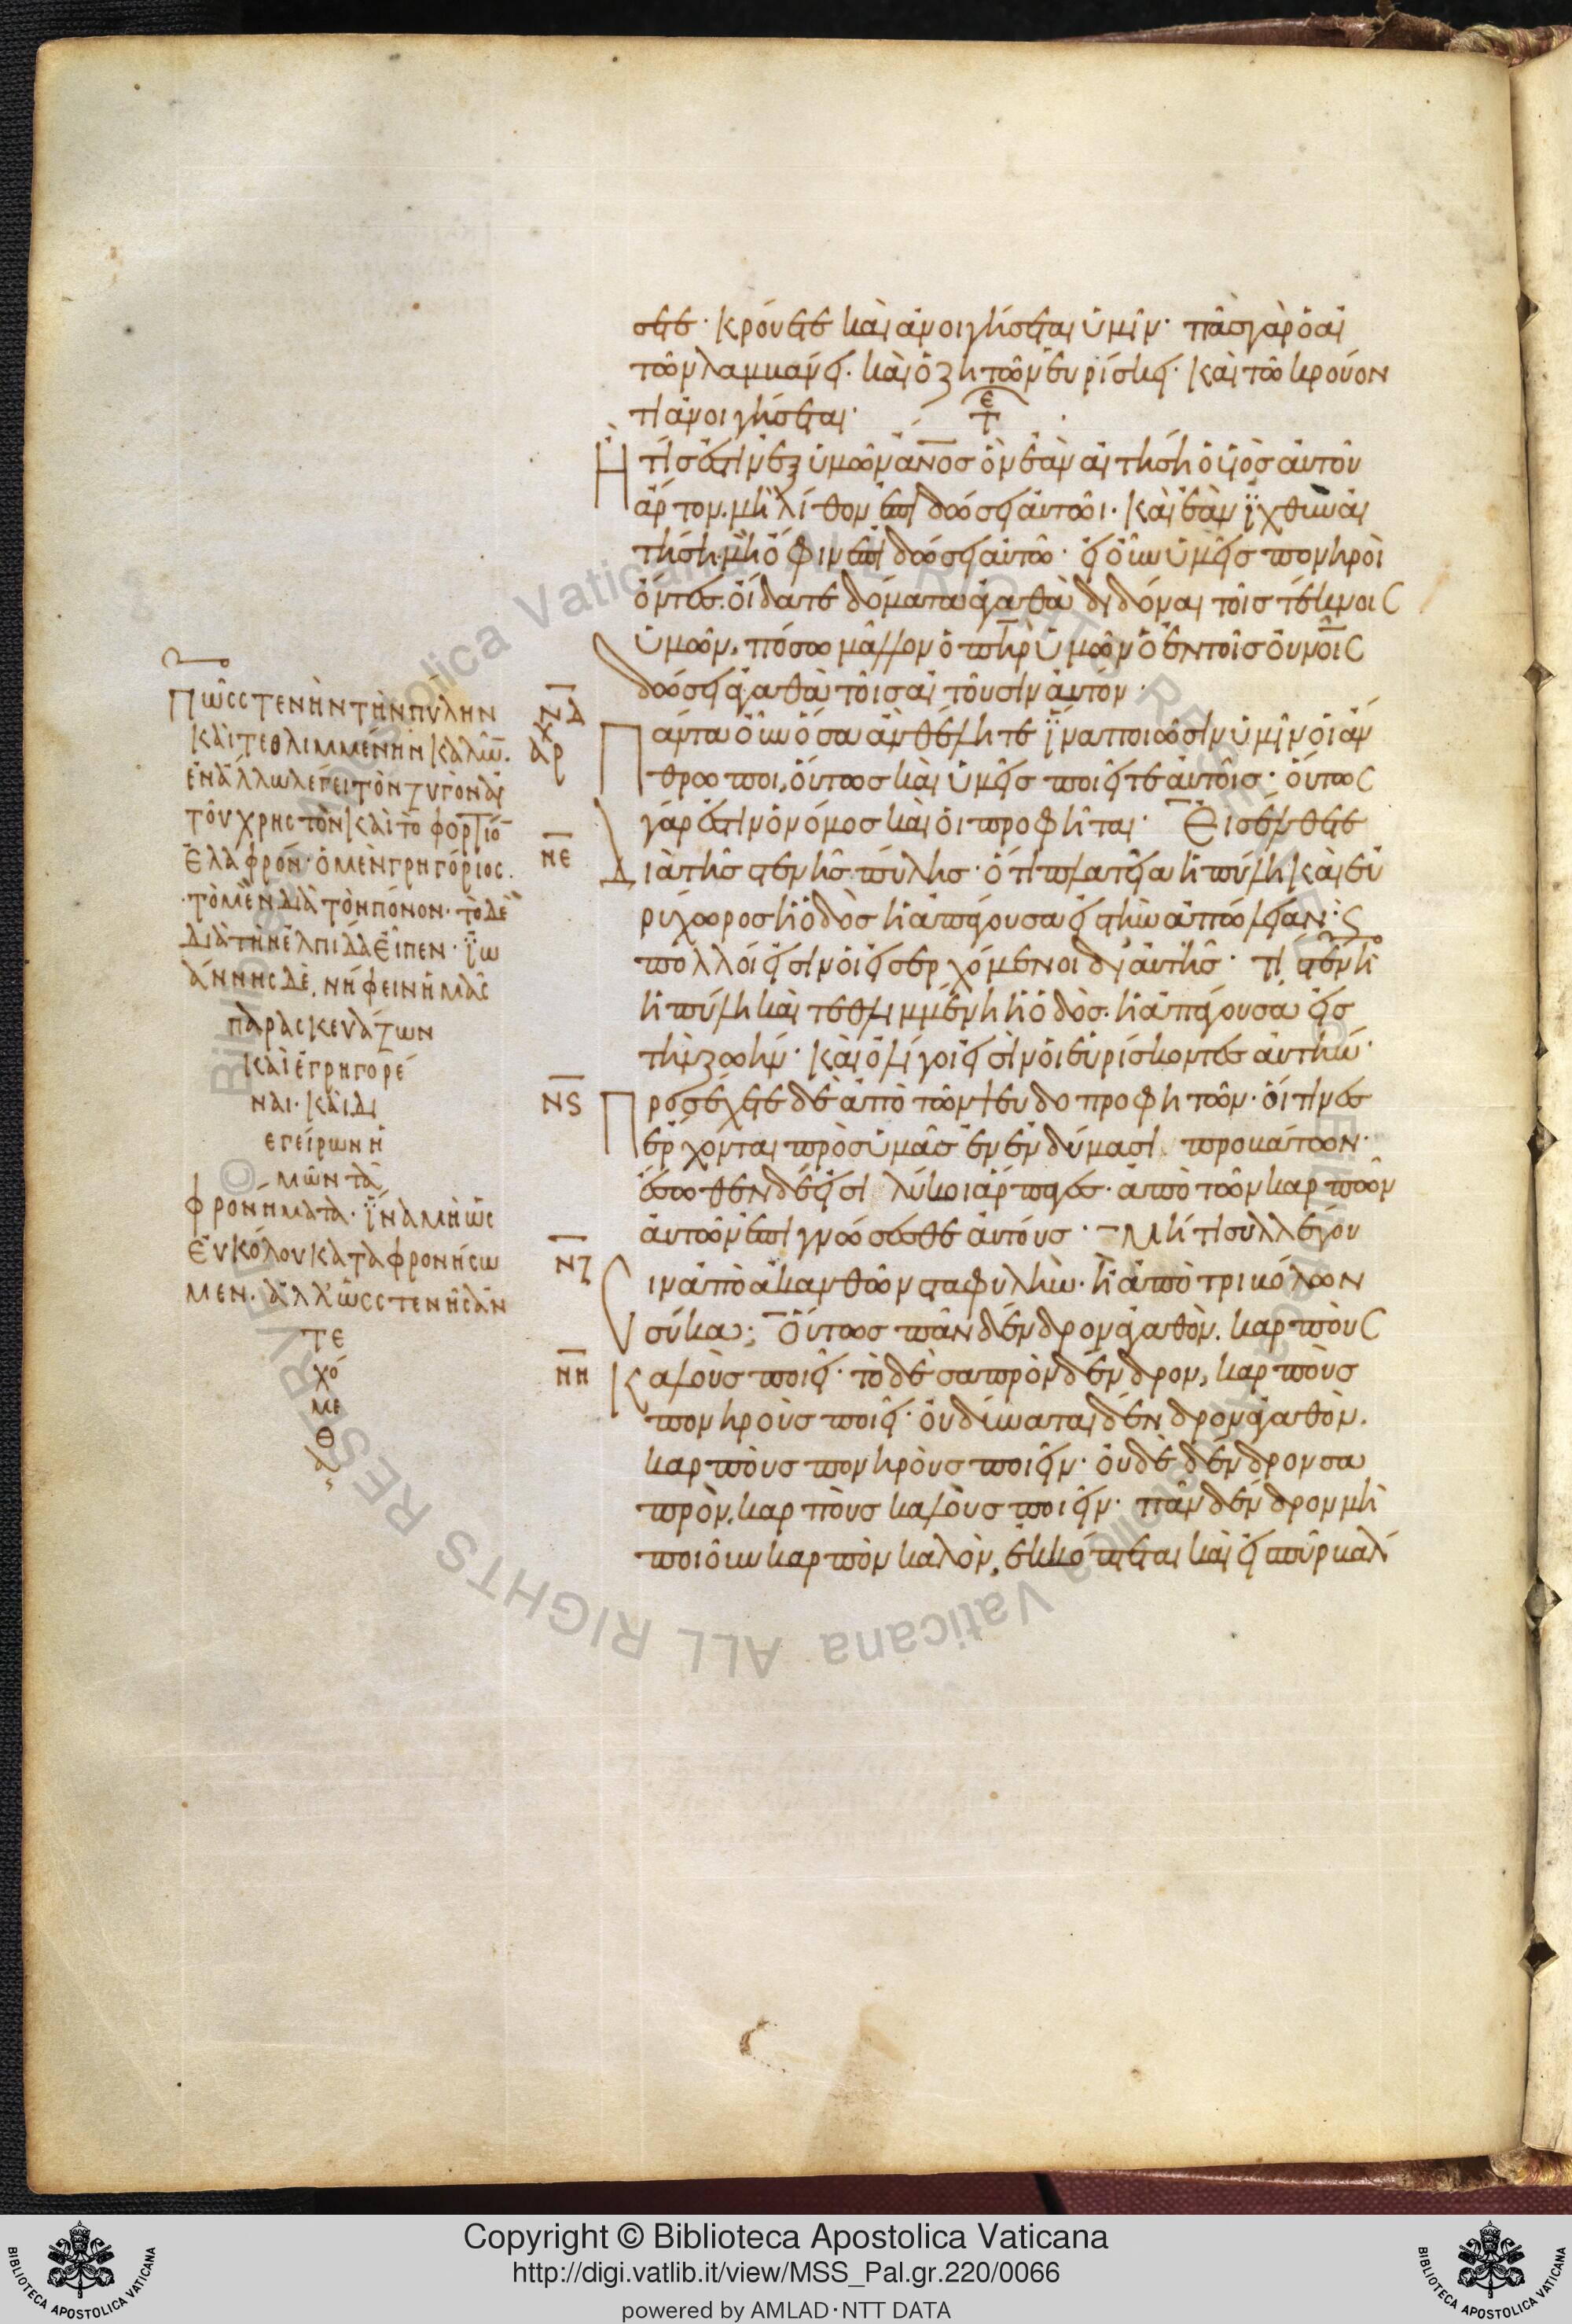 σετε· κρούετε καὶ ἀνοιγήσεται ὑμῖν· πᾶς γὰρ ὁ αἰ
τῶν λαμβάνει· καὶ ὁ ζητῶν εὑρίσκει· καὶ τῶ κρούον
τι ἀνοιγήσεται·
Ἢ τίς ἐστιν ἐξ ὑμῶν ἄνος ὃν ἐὰν αἰτήση ὁ υἱὸς αὐτοῦ
ἄρτον· μὴ λίθον ἐπιδώσει αὐτῶι· καὶ ἐὰν ἰχθὺν αἰ
τήση· μὴ ὄφιν ἐπιδώσει αὐτῶ· εἰ οὖν ὑμεῖς πονηροὶ
ὄντες· οἴδατε δόματα ἀγαθὰ διδόναι τοῖς τέκνοις
ὑμῶν, πόσω μᾶλλον ὁ πηρ ὑμῶν ὁ ἐν τοῖς οὐνοῖς
δώσει ἀγαθὰ τοῖς αἰτοῦσιν αὐτόν·
ΝΔ
Πάντα οὖν ὅσα ἂν θέλητε ἵνα ποιῶσιν ὑμῖν οἱ ἄν
θρωποι, οὕτως καὶ ὑμεῖς ποιεῖτε αὐτοῖς· οὕτως
γάρ ἐστιν ὁ νόμος καὶ οἱ προφῆται· Εἰσέλθετε
ΝΕ
Διὰ τῆς στενῆς πύλης· ὅτι πλατεῖα ἡ πύλη καὶ εὐ
ρύχωρος ἡ ὁδὸς ἡ ἀπάγουσα εἰς τὴν ἀπώλειαν· ς
πολλοί εἰσιν οἱ εἰσερχόμενοι δι' αὐτῆς· τί στενὴ
ἡ πύλη καὶ τεθλιμμένη ἡ ὁδὸς· ἡ ἀπάγουσα εἰς
τὴν ζωήν· καὶ ὀλίγοι εἰσὶν οἱ εὑρίσκοντες αὐτήν·
Νς
Προσέχετε δὲ ἀπὸ τῶν ψευδοπροφητῶν· οἵτινες
ἔρχονται πρὸς ὑμᾶς ἐν ἐνδύμασι προβάτων·
ἔσωθεν δέ εἰσι λύκοι ἅρπαγες· ἀπὸ τῶν καρπῶν
αὐτῶν ἐπιγνώσεσθε αὐτούς· Μήτι συλλέγου
ΝΖ
σιν ἀπὸ ἀκανθῶν σταφυλὴν· ἢ ἀπὸ τριβόλων
σύκα; Οὕτως πᾶν δένδρον ἀγαθὸν· καρποὺς
ΝΗ
Καλοὺς ποιεῖ· τὸ δὲ σαπρὸν δένδρον, καρποὺς
πονηροὺς ποιεῖ· οὐ δύναται δένδρον ἀγαθὸν·
καρποὺς πονηροὺς ποιεῖν· οὐδὲ δένδρον σα
πρὸν, καρποὺς καλοὺς ποιεῖν· πᾶν δένδρον μὴ
ποιοῦν καρπὸν καλὸν, ἐκκόπτεται καὶ εἰς πῦρ βάλ
Πῶς στενὴν τὴν πύλην
καὶ τεθλιμμένην καλῶ·
ἐν ἄλλω λέγει τὸν ζυγὸν αὐ
τοῦ χρηστὸν καὶ τὸ φορτίο
ἐλαφρόν· ὁ μὲν γρηγόριος·
τὸ μὲν διὰ τὸν πόνον· τὸ δὲ
διὰ τὴν ἐλπίδα εἶπεν· ἰω
άννης δὲ, νήφειν ἡμᾶς
παρασκευάζων
καὶ ἐγρηγορέ
ναι· καὶ δι
εγείρων ἡ
μῶν τὰ
φρονήματα· ἵνα μὴ ὡς
εὐκόλου καταφρονήσω
μεν· ἀλλ' ὡς στενῆς ἀν
τε
χό
με
θ
α
Biblioteca Apostolica Vaticana ALL RIGHTS RESERVED ©
Copyright © Biblioteca Apostolica Vaticana
http://digi.vatlib.it/view/MSS_Pal.gr.220/0066
powered by AMLAD·NTT DATA
BIBLIOTECA APOSTOLICA VATICANA
BIBLIOTECA APOSTOLICA VATICANA